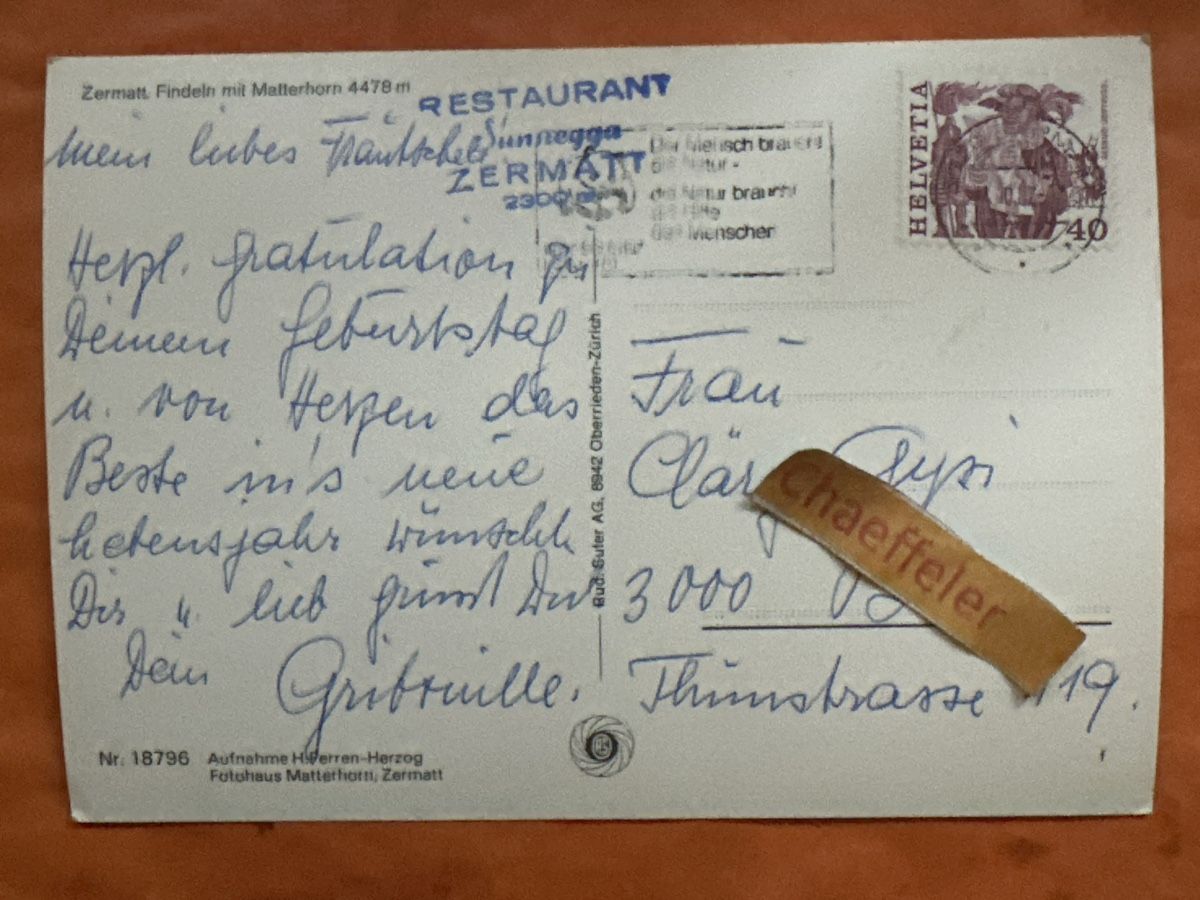 Zermatt. Findeln mit Matterhorn 4478 m
RESTAURANT
Sunnegga
ZERMATT
2300 m
Der Mensch braucht
die Natur -
die Natur braucht
die Hilfe
des Menschen
HELVETIA
40
Mein liebes
Herzl. Gratulation zu
Deinem Geburtstag
u. von Herzen das
Beste in's neue
Lebensjahr wünscht
Dir u. lieb grüsst Dich
Dein Gribouille.
Frau
Clär Gysi
3000
Thunstrasse 119.
chaeffeler
Rud. Suter AG, 8942 Oberrieden-Zürich
Nr. 18796 Aufnahme H. Perren-Herzog
Fotohaus Matterhorn, Zermatt